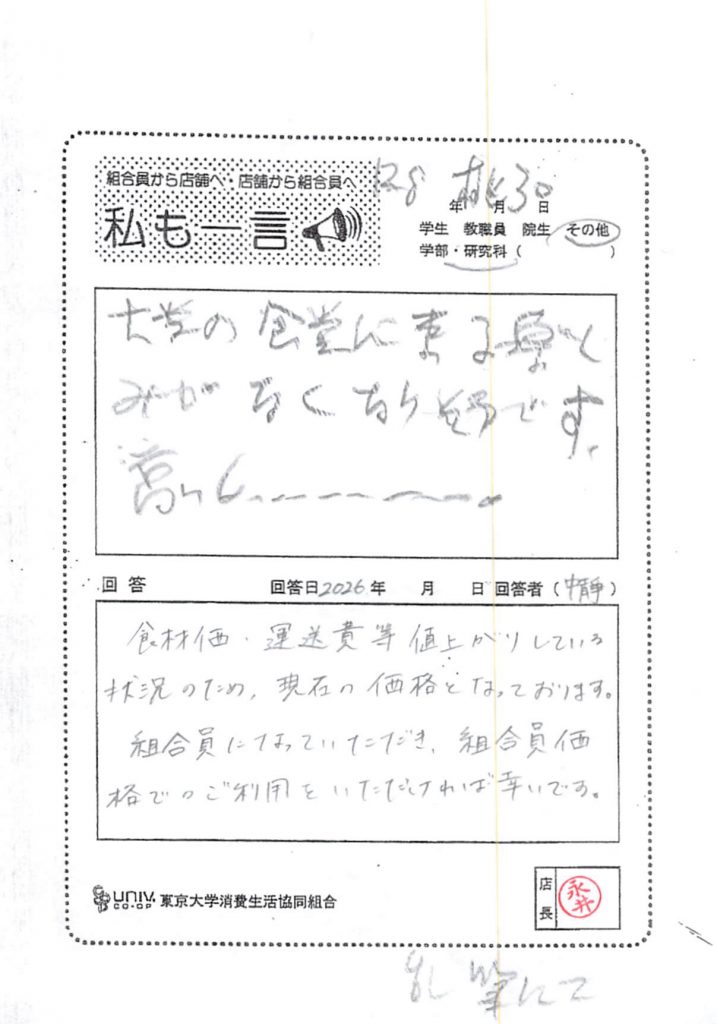 組合員から店舗へ・店舗から組合員へ
私も一言
年 月 日
学生 教職員 院生 その他
学部・研究科（ ）
大学の食堂に来る
みがなくなりそうです。
高い〜〜〜〜〜。
回答 回答日2026年 月 日 回答者（中静）
食材価・運送費等値上がりしている
状況のため、現在の価格となっております。
組合員になっていただき、組合員価
格でのご利用をいただければ幸いです。
UNIV. CO-OP 東京大学消費生活協同組合
店長 永井
乱筆にて